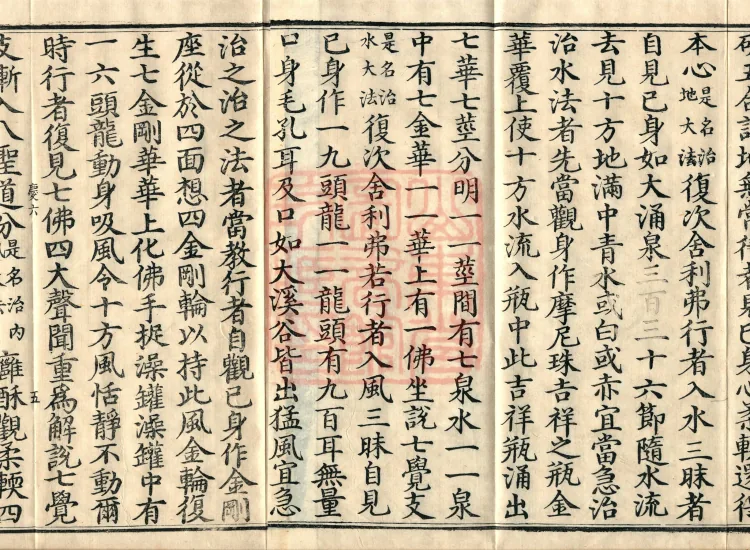 本心是名治地大法復次舍利弗行者入水三昧者
自見己身如大涌泉三百三十六節隨水流
去見十方地滿中青水或白或赤宜當急治
治水法者先當觀身作摩尼珠吉祥之瓶金
華覆上使十方水流入瓶中此吉祥瓶涌出
七華七莖分明一一莖間有七泉水一一泉
中有七金華一一華上有一佛坐說七覺支
是名治水大法復次舍利弗若行者入風三昧自見
己身作一九頭龍一一龍頭有九百耳無量
口身毛孔耳及口如大溪谷皆出猛風宜急
治之治之法者當教行者自觀己身作金剛
座從於四面想四金剛輪以持此風金輪復
生七金剛華華上化佛手捉澡罐澡罐中有
一六頭龍動身吸風令十方風恬靜不動爾
時行者復見七佛四大聲聞重爲解說七覺
五
支漸入八聖道分是名治內酥觀柔輭四